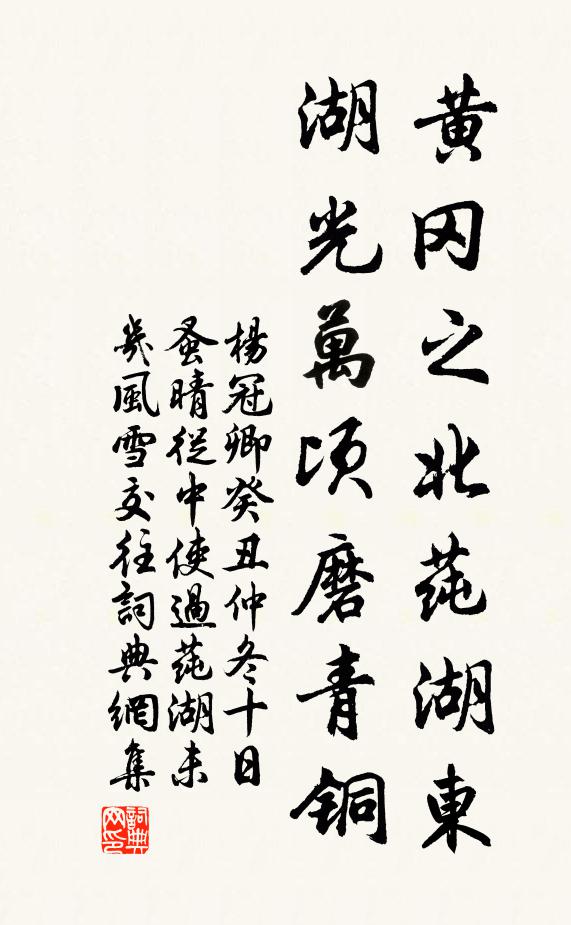 黄冈之北莼湖東
湖光萬頃磨青铜
楊冠卿癸丑仲冬十日
蚤晴從中使過莼湖未
幾風雪交往詞典網集
詞典
网印